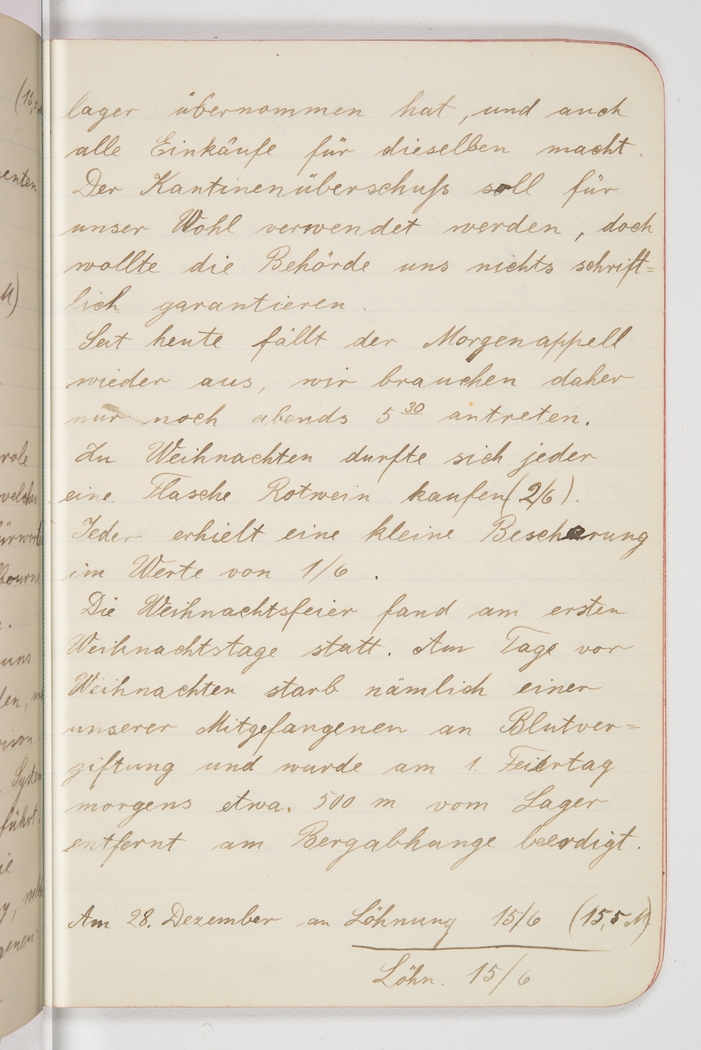 lager übernommen hat, und auch
alle Einkäufe für dieselben macht.
Der Kantinenüberschuß soll für
unser Wohl verwendet werden, doch
wollte die Behörde uns nichts schrift=
lich garantieren.
Seit heute fällt der Morgenappell
wieder aus, wir brauchen daher
nur noch abends 5 30 antreten.
Zu Weihnachten durfte sich jeder
eine Flasche Rotwein kaufen (2/6).
Jeder erhielt eine kleine Bescherung
im Werte von 1/6.
Die Weihnachtsfeier fand am ersten
Weihnachtstage statt. Am Tage vor
Weihnachten starb nämlich einer
unserer Mitgefangenen an Blutver=
giftung und wurde am 1. Feiertag
morgens etwa. 500 m vom Lager
entfernt am Bergabhange beerdigt.
Am 28. Dezember an Löhnung 15/6 (15,5 M)
Löhn. 15/6